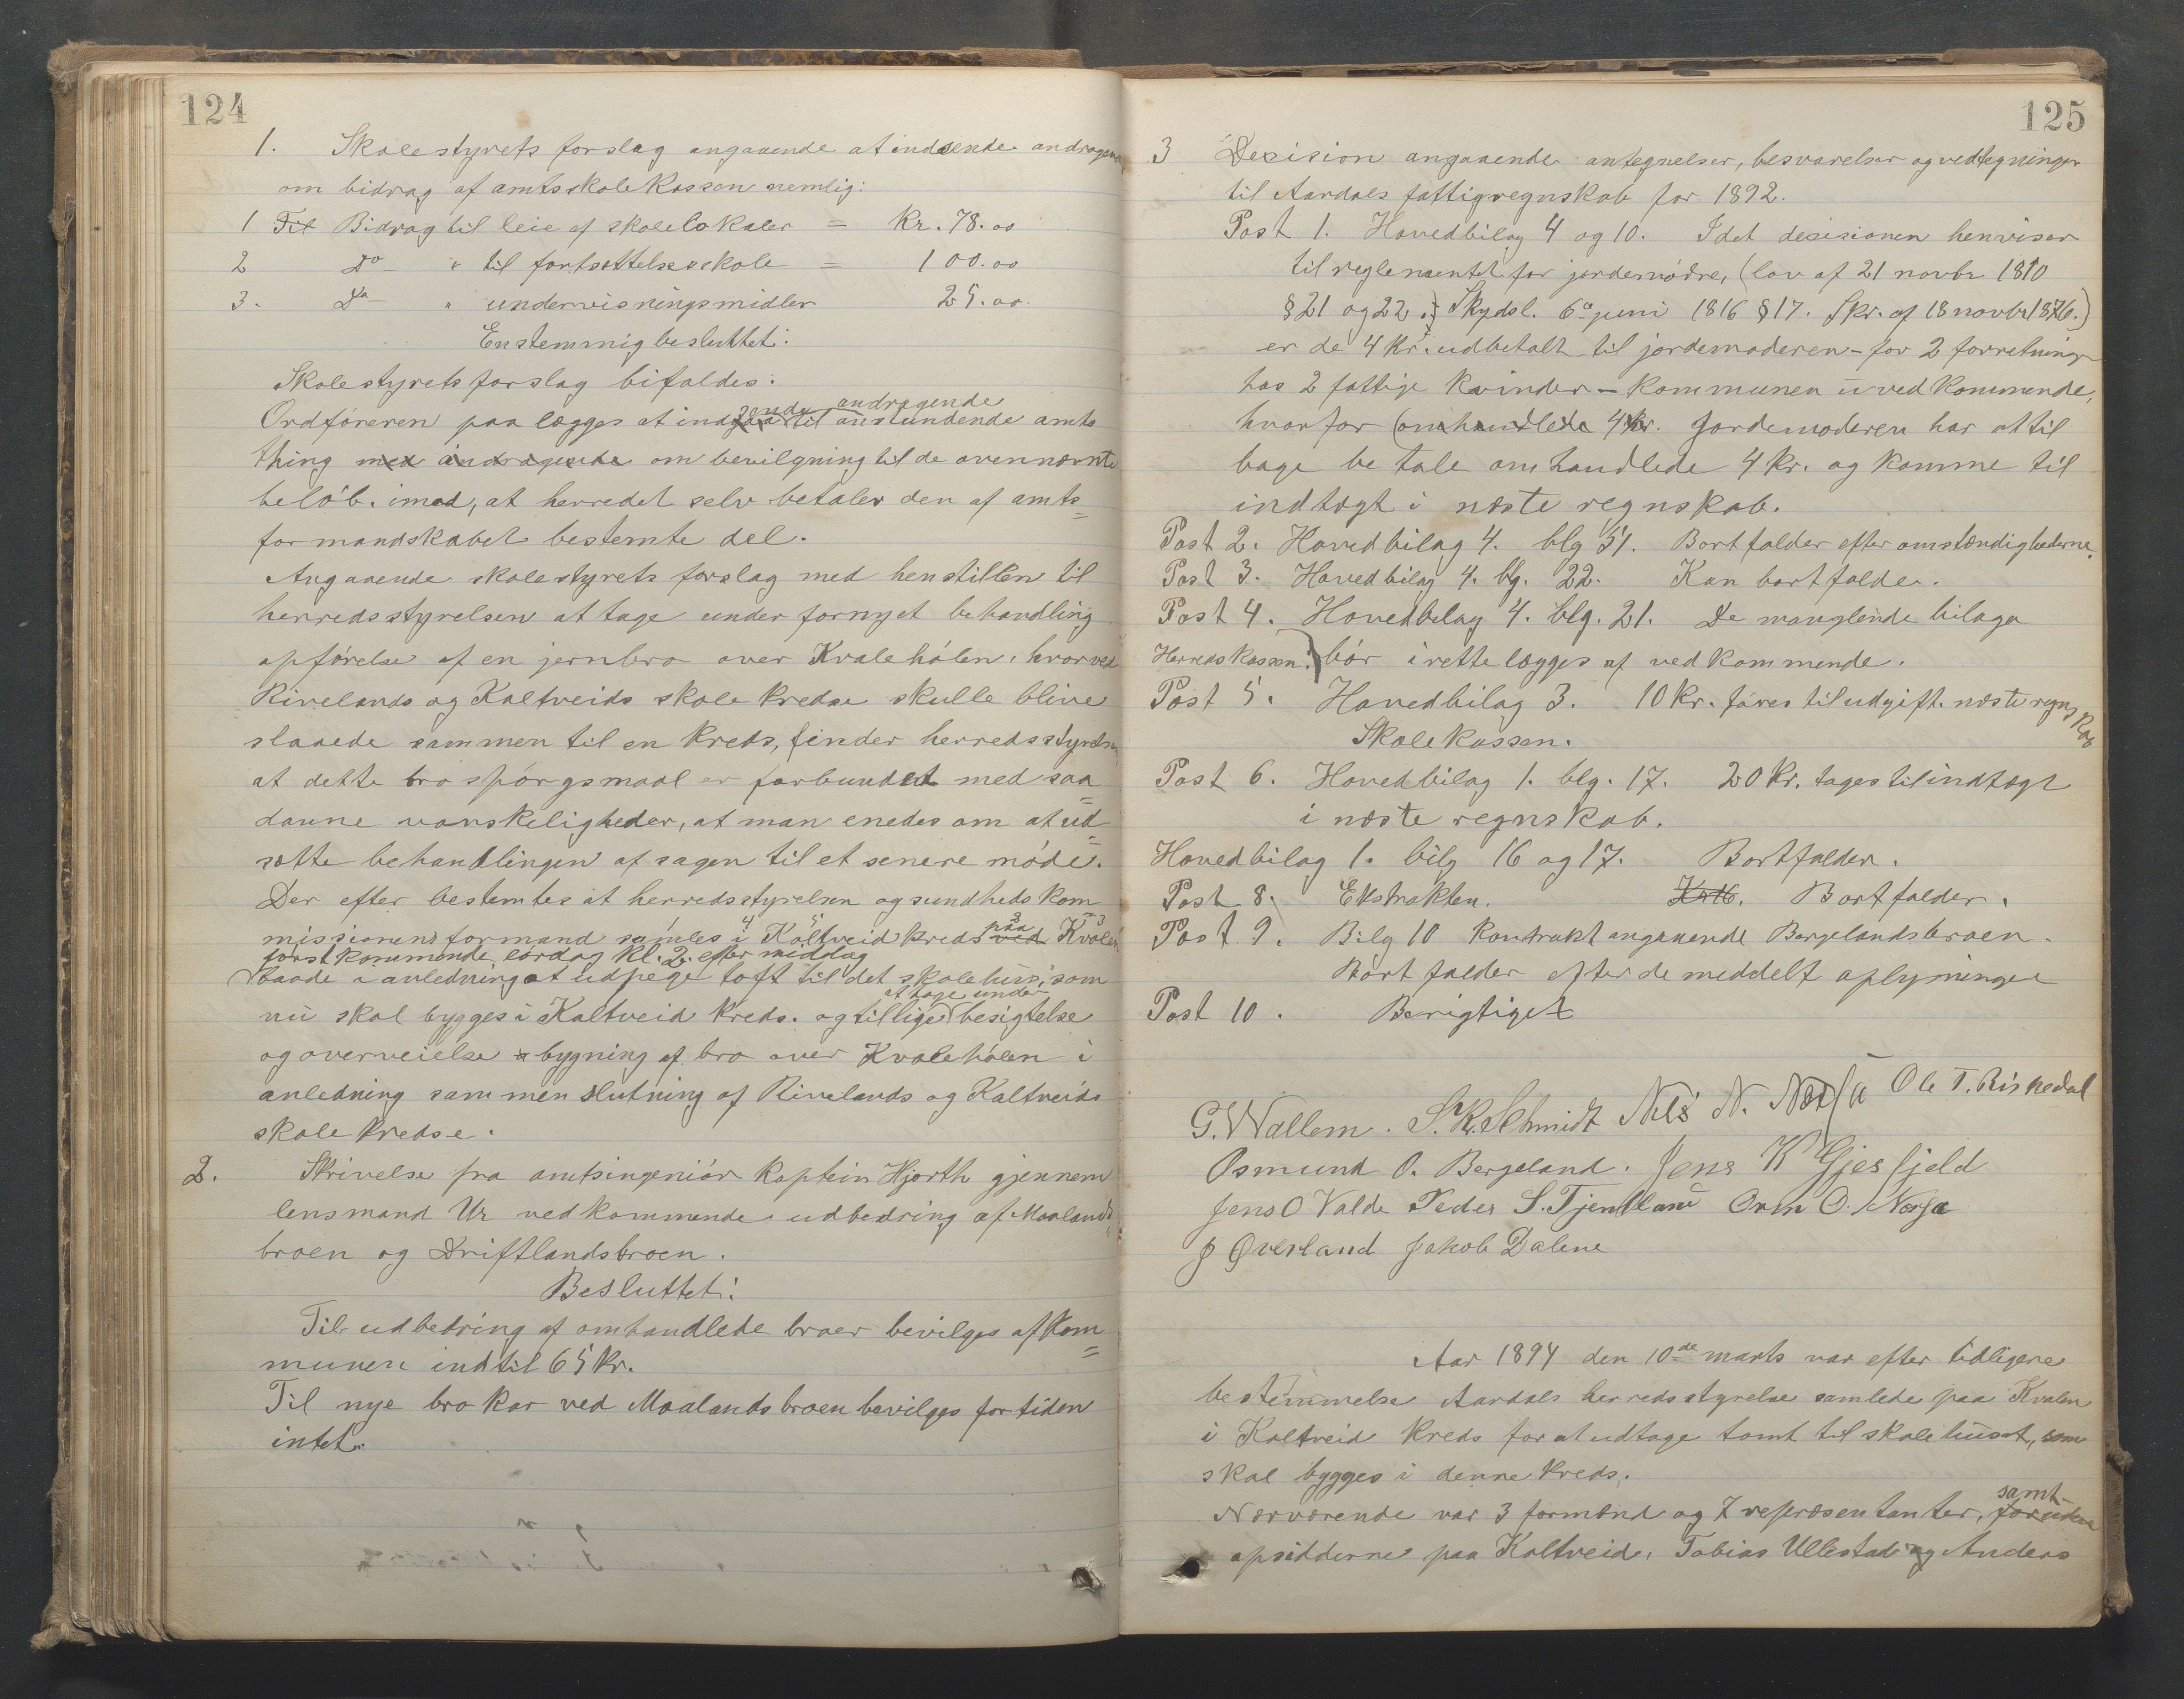 124
1. Skolestyrets forslag angaaende at indsende andragende
om bidrag af amtsskolekassen nemlig:
1 Til Bidrag til leie af skolelokaler = Kr. 78.00
2 Do " til fortsættelsesskole = 100.00
3. Do " undervisningsmidler 25.00.
Enstemmig besluttet:
Skolestyrets forslag bifaldes.
Ordföreren paalægges at indgaa til anstundende amts
sende andragende
thing med andragende om bevilgning til de ovennævnte
belöb. imod, at herredet selv betaler den af amts=
formandskabet bestemte del.
Angaaende skolestyrets forslag med henstillen til
herredsstyrelsen at tage under fornyet behandling
opförelse af en jernbro over Kvalehölen, hvorved
Rivelands og Kaltveids skolekredse skulle blive
slaaede sammen til en kreds, finder herredsstyrelsen
at dette brospörgsmaal er forbundet med saa=
danne vanskeligheder, at man enedes om at ud=
sætte behandlingen af sagen til et senere möde.
Der efter bestemtes at herredsstyrelsen og sundhedskom
missionens formand samles i Kaltveid kreds ved paa Kvalen
först kommende lördag kl. 2 efter middag
baade i anledning at udpege toft til det skolehus, som
nu skal bygges i Kaltveid kreds. og tillige at tage under besigtelse
og overveielse bygning af bro over Kvalehölen i
anledning sammenslutning af Rivelands og Kaltveids
skolekredse.
2. Skrivelse fra amtsingeniör kaptein Hjorth gjennem
lensmand Ur vedkommende udbedring af Maalands
broen og Driftlandsbroen.
Besluttet:
Til udbedring af omhandlede broer bevilges af kom=
munen indtil 65 kr.
Til nye brokar ved Maalandsbroen bevilges for tiden
intet.
125
3 Decision angaaende antegnelser, besvarelser og vedtegninger
til Aardals fattigregnskab for 1892.
Post 1. Hovedbilag 4 og 10. I det decisionen henviser
til reglementet for jordemödre, (lov af 21 novbr 1810
§ 21 og 22.; Skydsl. 6te juni 1816 § 17. Skr. af 18 novbr 1876.)
er de 4 kr. udbetalt til jordemoderen - for 2 forretninger
hos 2 fattige kvinder - kommunen uvedkommende,
hvorfor (omhandlede 4 kr. Jordemoderen har at til
bage betale omhandlede 4 kr. og komme til
indtægt i næste regnskab.
Post 2. Hovedbilag 4. blg 51. Bortfalder efter omstændighederne.
Post 3. Hovedbilag 4. blg. 22. Kan bortfalde.
Post 4. Hovedbilag 4. blg. 21. De manglende bilage
Herredskassen. bör irettelægges af vedkommende.
Post 5. Hovedbilag 3. 10 kr. föres til udgift næste regnskab
Skolekassen.
Post 6. Hovedbilag 1. blg. 17. 20 kr. tages til indtægt
i næste regnskab.
Hovedbilag 1. bilg 16 og 17. Bortfalder.
Post 8. Ekstrakten. Bortfalder.
Post 9. Bilg 10 Kontrakt angaaende Bergelandsbroen.
Bortfalder efter de meddelt oplysninger
Post 10. Berigtiget
G. Wallem. S. K. Schmidt Nils N. Næssa Ole T. Riskedal
Osmund O. Bergeland. Jens K Gjesfjeld
Jens O Valde Peder S. Tjentland Orm O. Næsse
J Øverland Jakob Dalene
Aar 1894 den 10de marts var efter tidligere
bestemmelse Aardals herredsstyrelse samlede paa Kvalen
i Kaltveid kreds for at udtage tomt til skolehuset, som
skal bygges i denne kreds.
Nærværende var 3 formænd og 7 repræsentanter, foruden samt
opsidderne paa Kaltveid, Tobias Ullestad og Anders